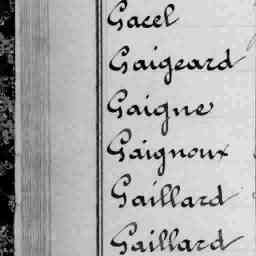 Gacel
Gaigeard
Gaigne
Gaignoux
Gaillard
Gaillard